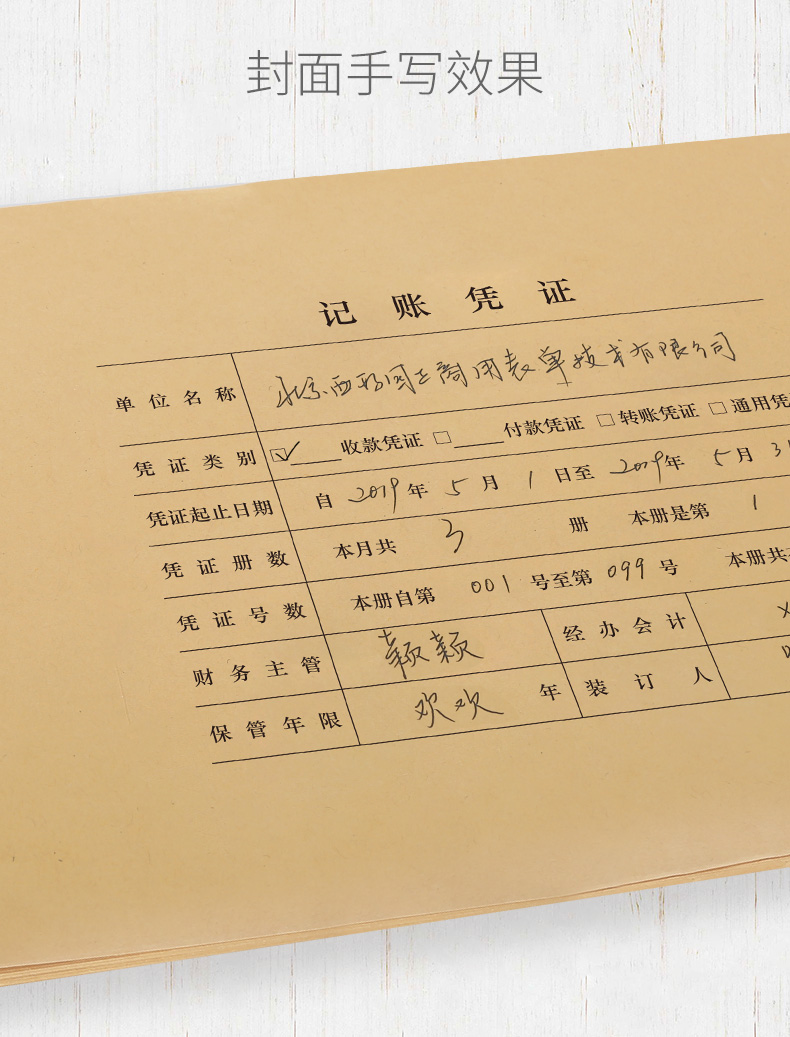 封面手写效果
记账凭证
单位名称 北京西玛园区商用表单技术有限公司
凭证类别 ☑____收款凭证 □____付款凭证 □转账凭证 □通用凭
凭证起止日期 自2019年5月1日至2019年5月31
凭证册数 本月共3册 本册是第1
凭证号数 本册自第001号至第099号 本册共
财务主管 颖颖 经办会计
保管年限 欢欢 年 装订人